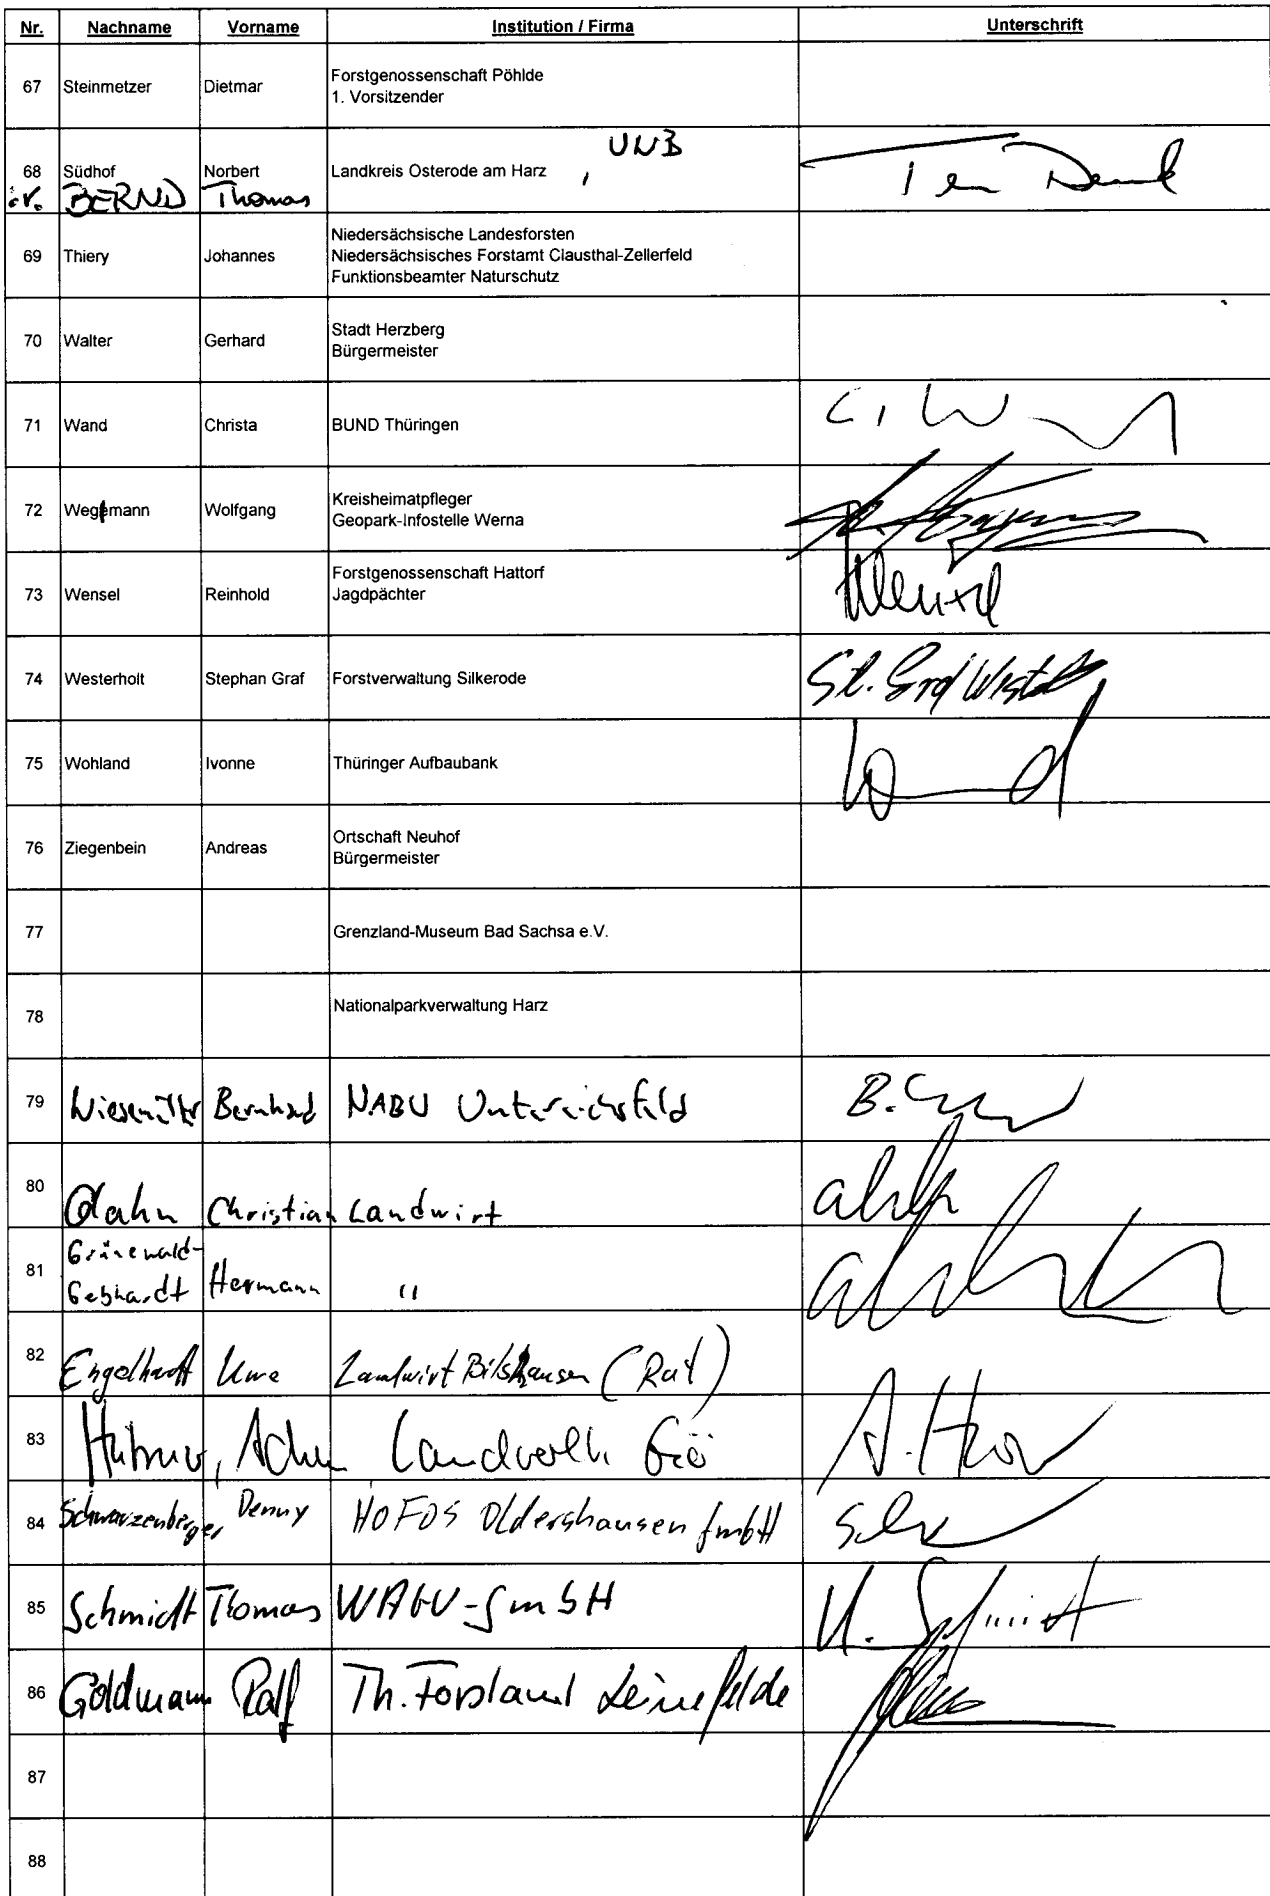 Nr. Nachname Vorname Institution / Firma Unterschrift
67 Steinmetzer Dietmar Forstgenossenschaft Pöhlde
1. Vorsitzender
UNB
68 Südhof Norbert Landkreis Osterode am Harz ,
i.V. BERND Thomas
69 Thiery Johannes Niedersächsische Landesforsten
Niedersächsisches Forstamt Clausthal-Zellerfeld
Funktionsbeamter Naturschutz
70 Walter Gerhard Stadt Herzberg
Bürgermeister
71 Wand Christa BUND Thüringen C. W
72 Wegemann Wolfgang Kreisheimatpfleger
Geopark-Infostelle Werna
73 Wensel Reinhold Forstgenossenschaft Hattorf
Jagdpächter
74 Westerholt Stephan Graf Forstverwaltung Silkerode St. Graf
75 Wohland Ivonne Thüringer Aufbaubank
76 Ziegenbein Andreas Ortschaft Neuhof
Bürgermeister
77 Grenzland-Museum Bad Sachsa e.V.
78 Nationalparkverwaltung Harz
79 Bernhard NABU Untereichsfeld B.
80 Christian Landwirt
81 Grünewald-
Gebhardt Hermann "
82 Engelhardt Uwe Landwirt Bilshausen (Rat)
83 Landvolk Gö A.
84 Schwarzenberger, Denny HOFOS Oldershausen GmbH
85 Schmidt Thomas GmbH Schmidt
86 Goldmann Ralf Th. Forstamt Leinefelde
87
88